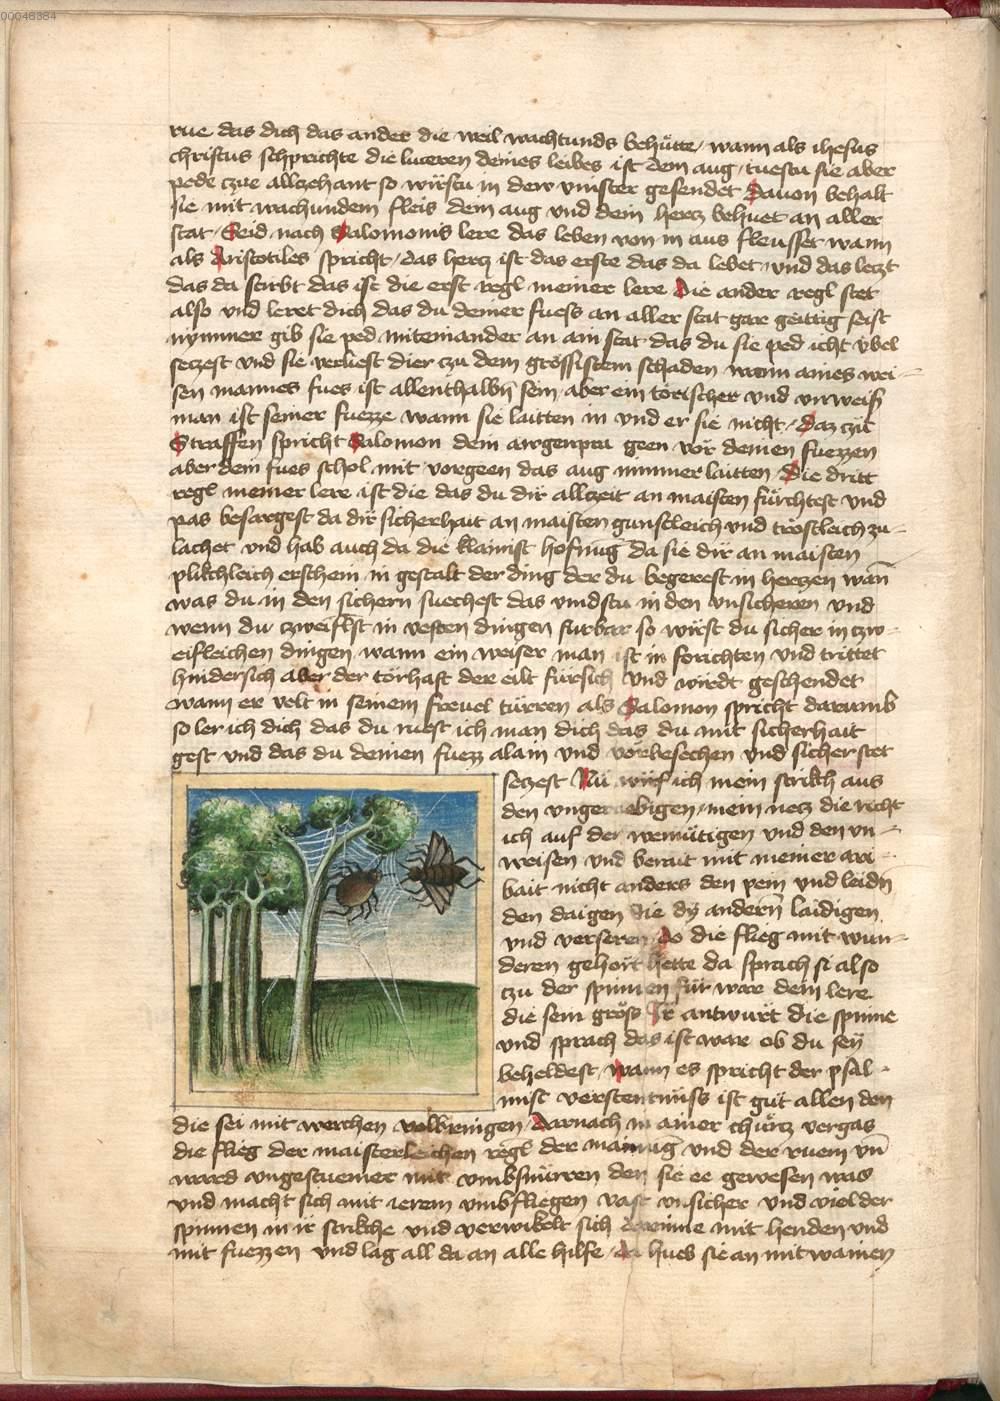 00048384
rue das dich das ander die weil wachtunds behütte / wann als ihesus
christus schprichte die luceren deines leibes ist dem aug / tuestu sie aber
pede czue allczehant so wirstu in dew vinster gesendet Dauon behalt
sie mit wachundem fleis dem aug vnd dein hercz behuet an aller
stat / Seid nach Salomonis lere das leben von in aus fleusset wann
als Aristotiles spricht / das hercz ist das erste das da lebet / vnd das leczt
das da stirbt das ist die erst regl meiner lere Die ander regl stet
also vnd leret dich das du deiner fuess an aller stat gar geittig seist
nymmer gib sie ped miteinander an ain stat das du sie ped icht vbel
seczest vnd sie verliest dier czu dem grössistem schaden wann aines wei-
sen mannes fues ist allenthalbn̄ sein / aber ein törischer vnd vnweiß
man ist seiner fuezze wann sie laitten in vnd er sie nicht / Daz czu
Straffen spricht Salomon dein awgenpra geen vor deinen fuezzen
aber dem fues schol mit vorgeen das aug nimmer laitten Die dritt
regl meiner lere ist die das du dir allczeit an maisten fürchtest vnd
pas besargest da dir sicherhait an maisten gunstleich vnd tröstleich zu-
lachet vnd hab auch da die klainist hofnūg da sie dir an maisten
plikchleich erschein in gestalt der ding der du begerest in herczen wan̄
was du in den sichern suechest das vindstu in den vnsicheren vnd
wenn du czweiflst in vesten dingen furbar so wirst du sicher in czw-
eifleichen dingen wann ein weiser man ist in forichten vnd trittet
hindersich aber der törhaft der eilt fürsich vnd wirdt geschendet
wann er velt in seinem freuel türren als Salomon spricht darumb
so ler ich dich das du niest ich man dich das du mit sicherhait
gest vnd das du deinen fuezz alain vnd vorbesechen vnd sicher stet
seczest Nu wirf ich mein strikch aus
den vngeruebigen / mein necz die richt
ich auf der wemütigen vnd den vn-
weisen vnd berait mit meiner ari-
bait nicht anders den pein vnd leidn̄
den daigen die dy andern̄ laidigen
vnd verseren Do die flieg mit wun-
deren gehort hette da sprach si also
czu der spinnen für war dein lere
die sein gröss Ir antwurt die spinne
vnd sprach das ist war ob du sey
beheldest / wann es spricht der psal-
mist verstentnüss ist gut allen den
die sei mit werchen volbrenigen / Darnach in ainer churcz vergas
die flieg der maisterleichen regl der mainūg vnd der ruem vn̄
ward vngestuemer mit vmbsnurren den sie ee gewesen was
vnd macht sich mit ierem vmbfliegen vast vnsicher vnd viel der
spinnen in ir strikche vnd verwikelt sich dareinne mit henden vnd
mit fuezzen vnd lag all da an alle hilfe / da hueb sie an mit wainen